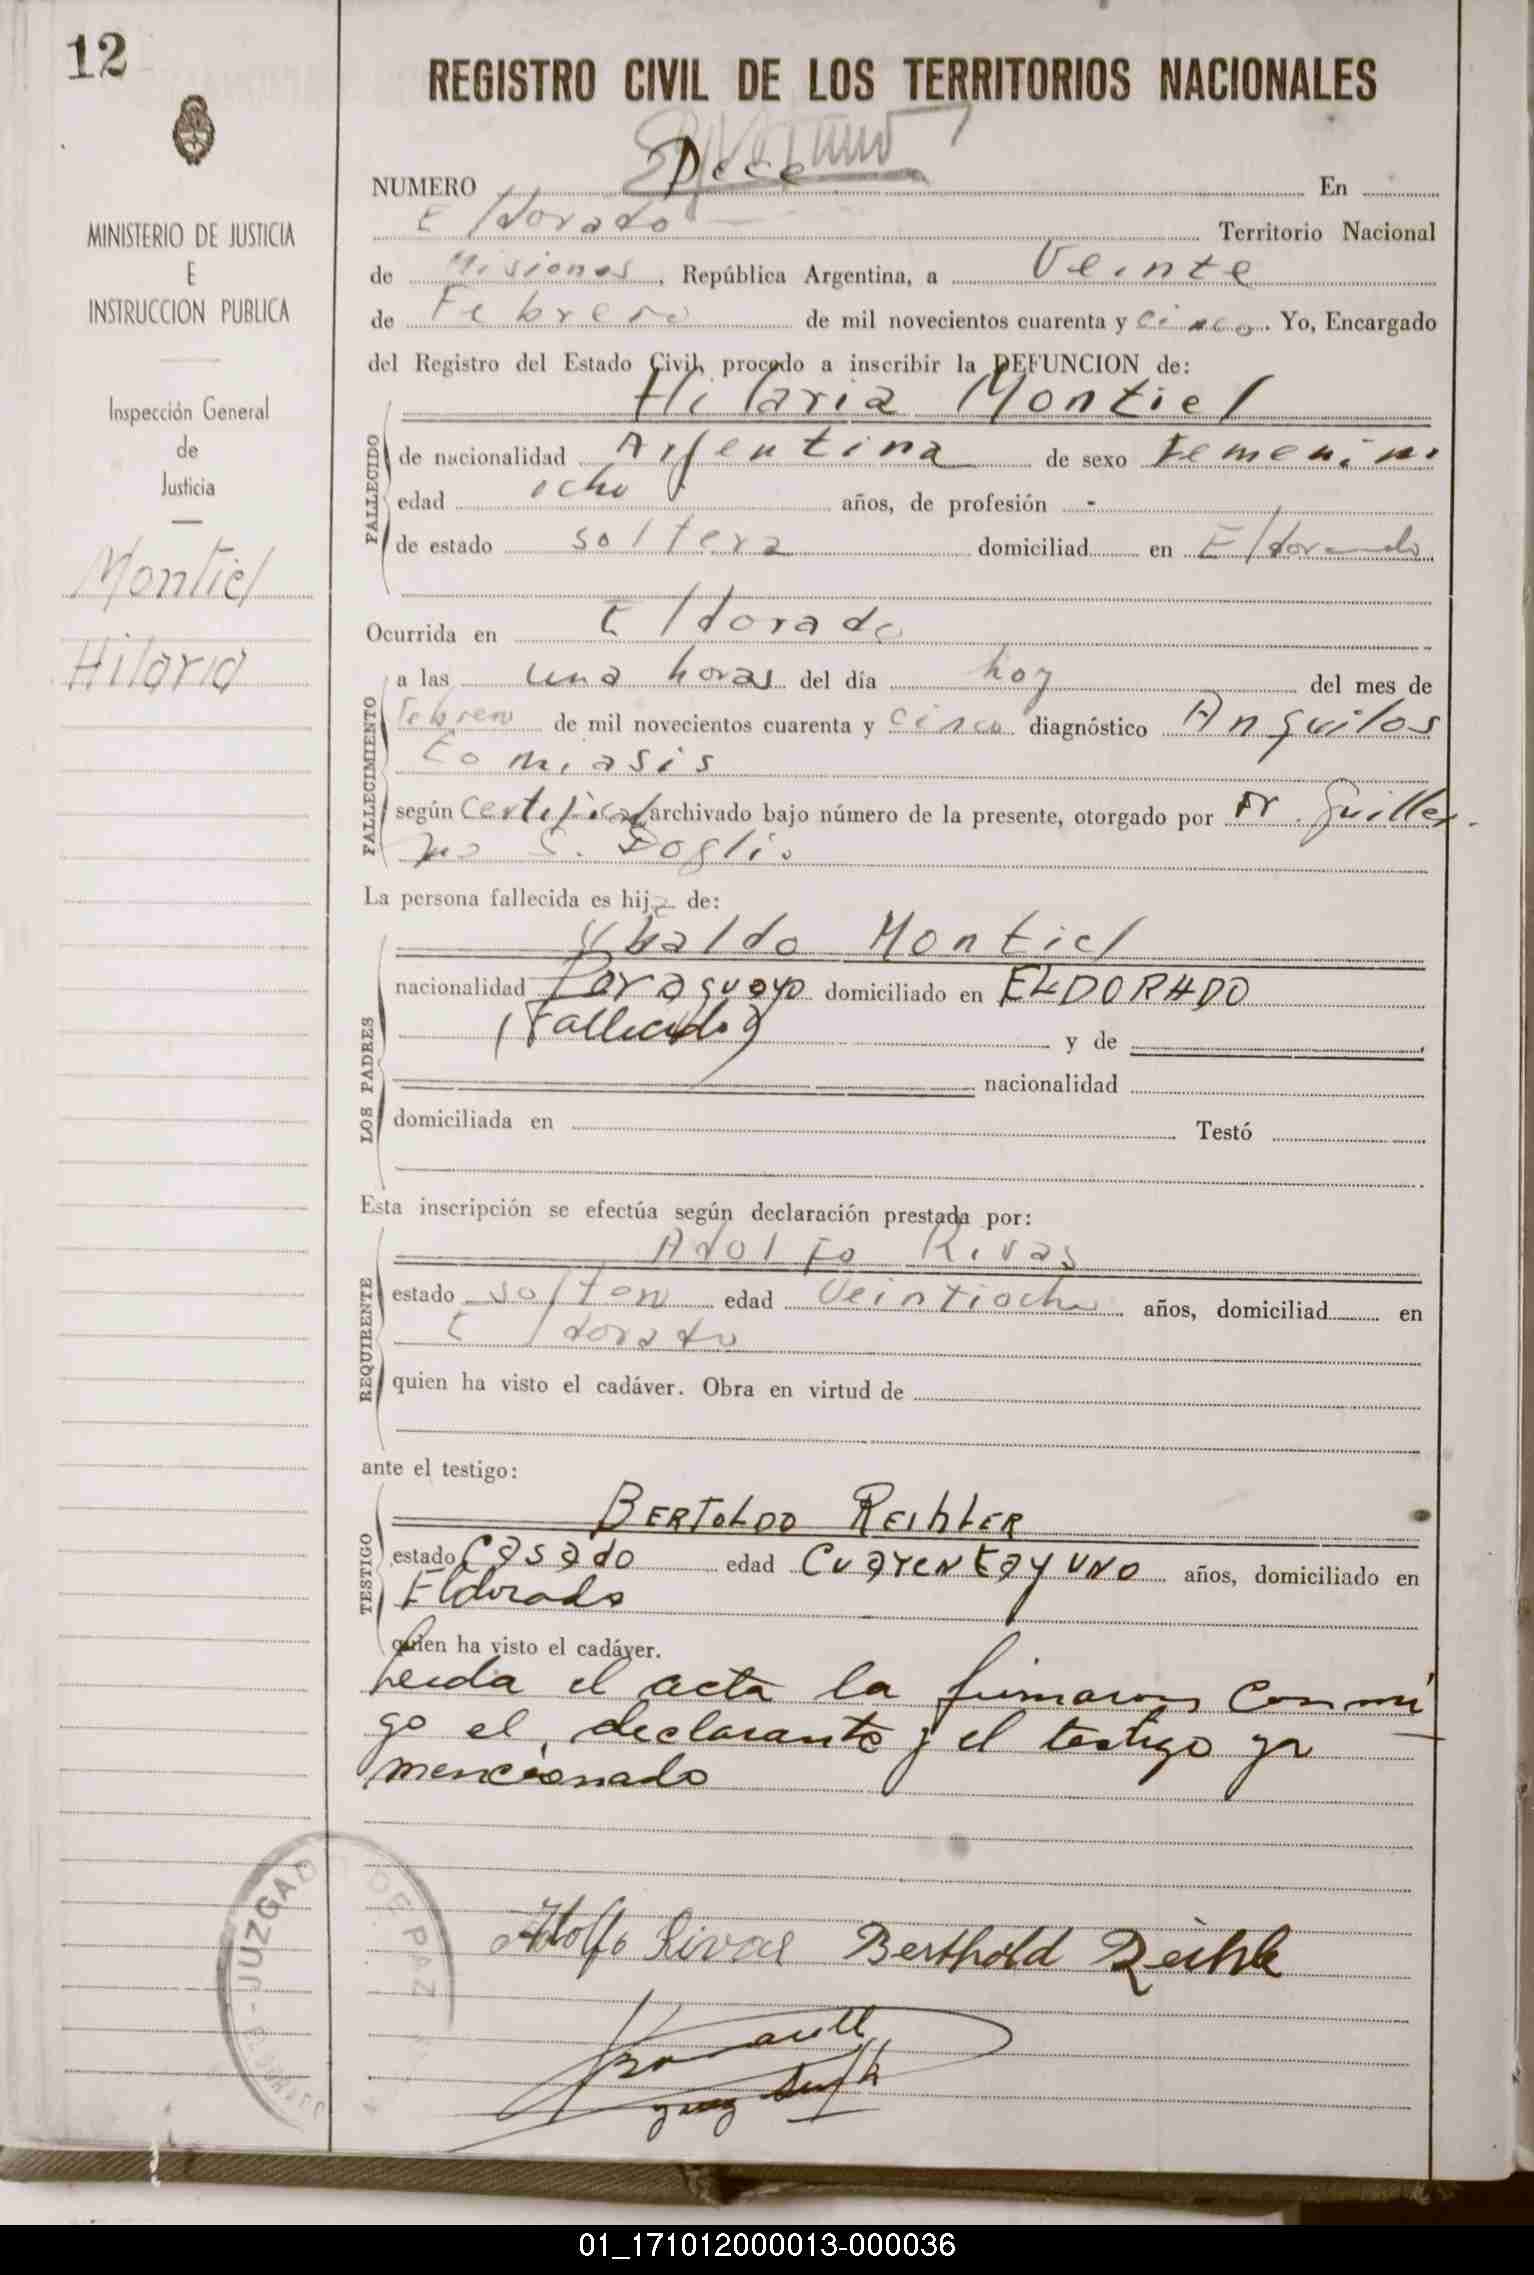 12
REGISTRO CIVIL DE LOS TERRITORIOS NACIONALES
MINISTERIO DE JUSTICIA
E
INSTRUCCION PUBLICA
Inspección General
de
Justicia
Montiel
Hilaria
NUMERO Doce En
Eldorado Territorio Nacional
de Misiones, República Argentina, a Veinte
de Febrero de mil novecientos cuarenta y cinco. Yo, Encargado
del Registro del Estado Civil, procedo a inscribir la DEFUNCION de:
Hilaria Montiel
FALLECIDO
de nacionalidad Argentina de sexo Femenino
edad ocho años, de profesión -
de estado soltera domiciliad en Eldorado
Ocurrida en Eldorado
FALLECIMIENTO
a las una horas del día hoy del mes de
Febrero de mil novecientos cuarenta y cinco diagnóstico Anquilos
tomiasis
según Certificado archivado bajo número de la presente, otorgado por Dr. Guiller
mo C. Doglio
La persona fallecida es hija de:
LOS PADRES
Ubaldo Montiel
nacionalidad Paraguayo domiciliado en ELDORADO
(Fallecido) y de
nacionalidad
domiciliada en Testó
Esta inscripción se efectúa según declaración prestada por:
REQUIRENTE
Adolfo Rivas
estado soltero edad Veintiocho años, domiciliad en
Eldorado
quien ha visto el cadáver. Obra en virtud de
ante el testigo:
TESTIGO
BERTOLDO REIHLER
estado Casado edad Cuarentayuno años, domiciliado en
Eldorado
quien ha visto el cadáver.
Leida el acta la firmaron conmi
go el declarante y el testigo ya
mencionado
JUZGADO DE PAZ
Adolfo Rivas Berthold Reihle
01_171012000013-000036